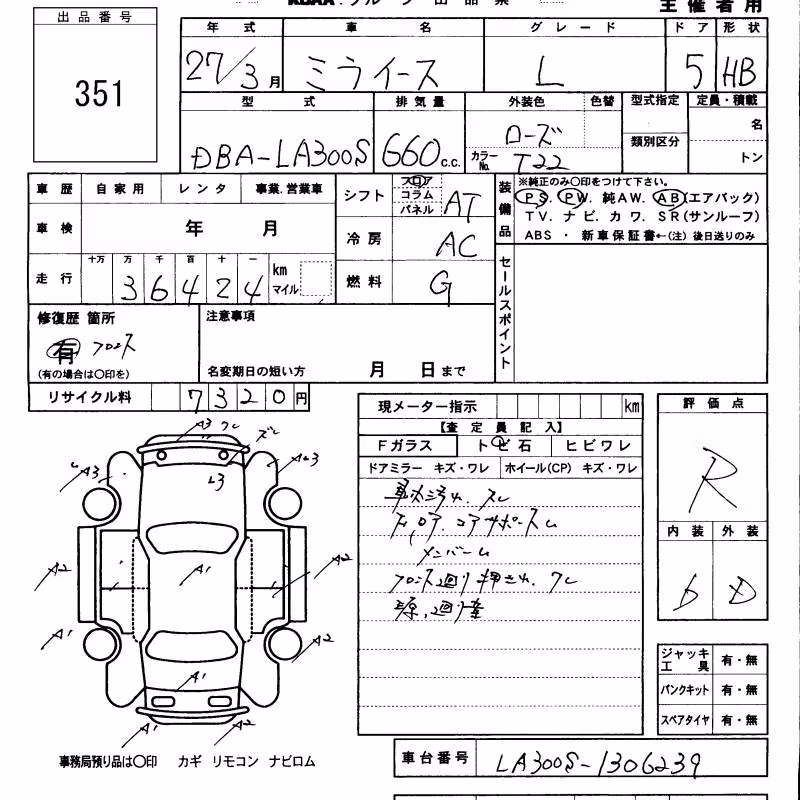 主催者用
出品番号
351
年式 車名 グレード ドア 形状
27/3月 ミライース L 5 HB
型式 排気量 外装色 色替 型式指定 定員・積載
DBA-LA300S 660c.c. ローズ 名
カラーNo. T22 類別区分 トン
車歴 自家用 レンタ 事業.営業車
シフト フロア コラム パネル AT
装備品 ※純正のみ○印をつけて下さい。
PS. PW. 純AW. AB(エアバック)
TV. ナビ. カワ. SR(サンルーフ)
ABS ・ 新車保証書←(注) 後日送りのみ
車検 年 月
冷房 AC
走行 十万 万 千 百 十 一
36424 km マイル
燃料 G
セールスポイント
修復歴 箇所
有 フロント
(有の場合は○印を)
注意事項
名変期日の短い方 月 日まで
リサイクル料 7320円
現メーター指示 km
【査定員記入】
Fガラス トビ石 ヒビワレ
ドアミラー キズ・ワレ ホイール(CP) キズ・ワレ
メンバーム
評価点
R
内装 外装
b D
A3 クレ
ズレ
A3
A2
A1
A1
A2
A2
A1
A1
A2
ジャッキ工具 有・無
パンクキット 有・無
スペアタイヤ 有・無
事務局預り品は○印 カギ リモコン ナビロム
車台番号 LA300S-1306239